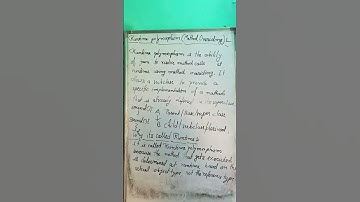 Runtime polymorphism (Method Overriding)
Runtime polymorphism is the ability
of java to resolve method calls at
runtime using method overriding. It
allows a subclass to provide a
specific implementation of a method
that is already defined in its superclass
A Parent/Base/super class
B child/subclass/derived
Why its called Runtime?
It is called Runtime polymorphism
because the method that gets executed
is determined at runtime based on the
actual object type not the reference type